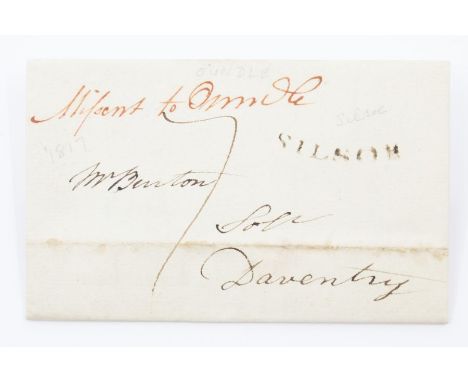 OUNDLE
Missent to Oundle
Silsoe
SILSOE
1817
7
Mr Burton
Solr
Daventry